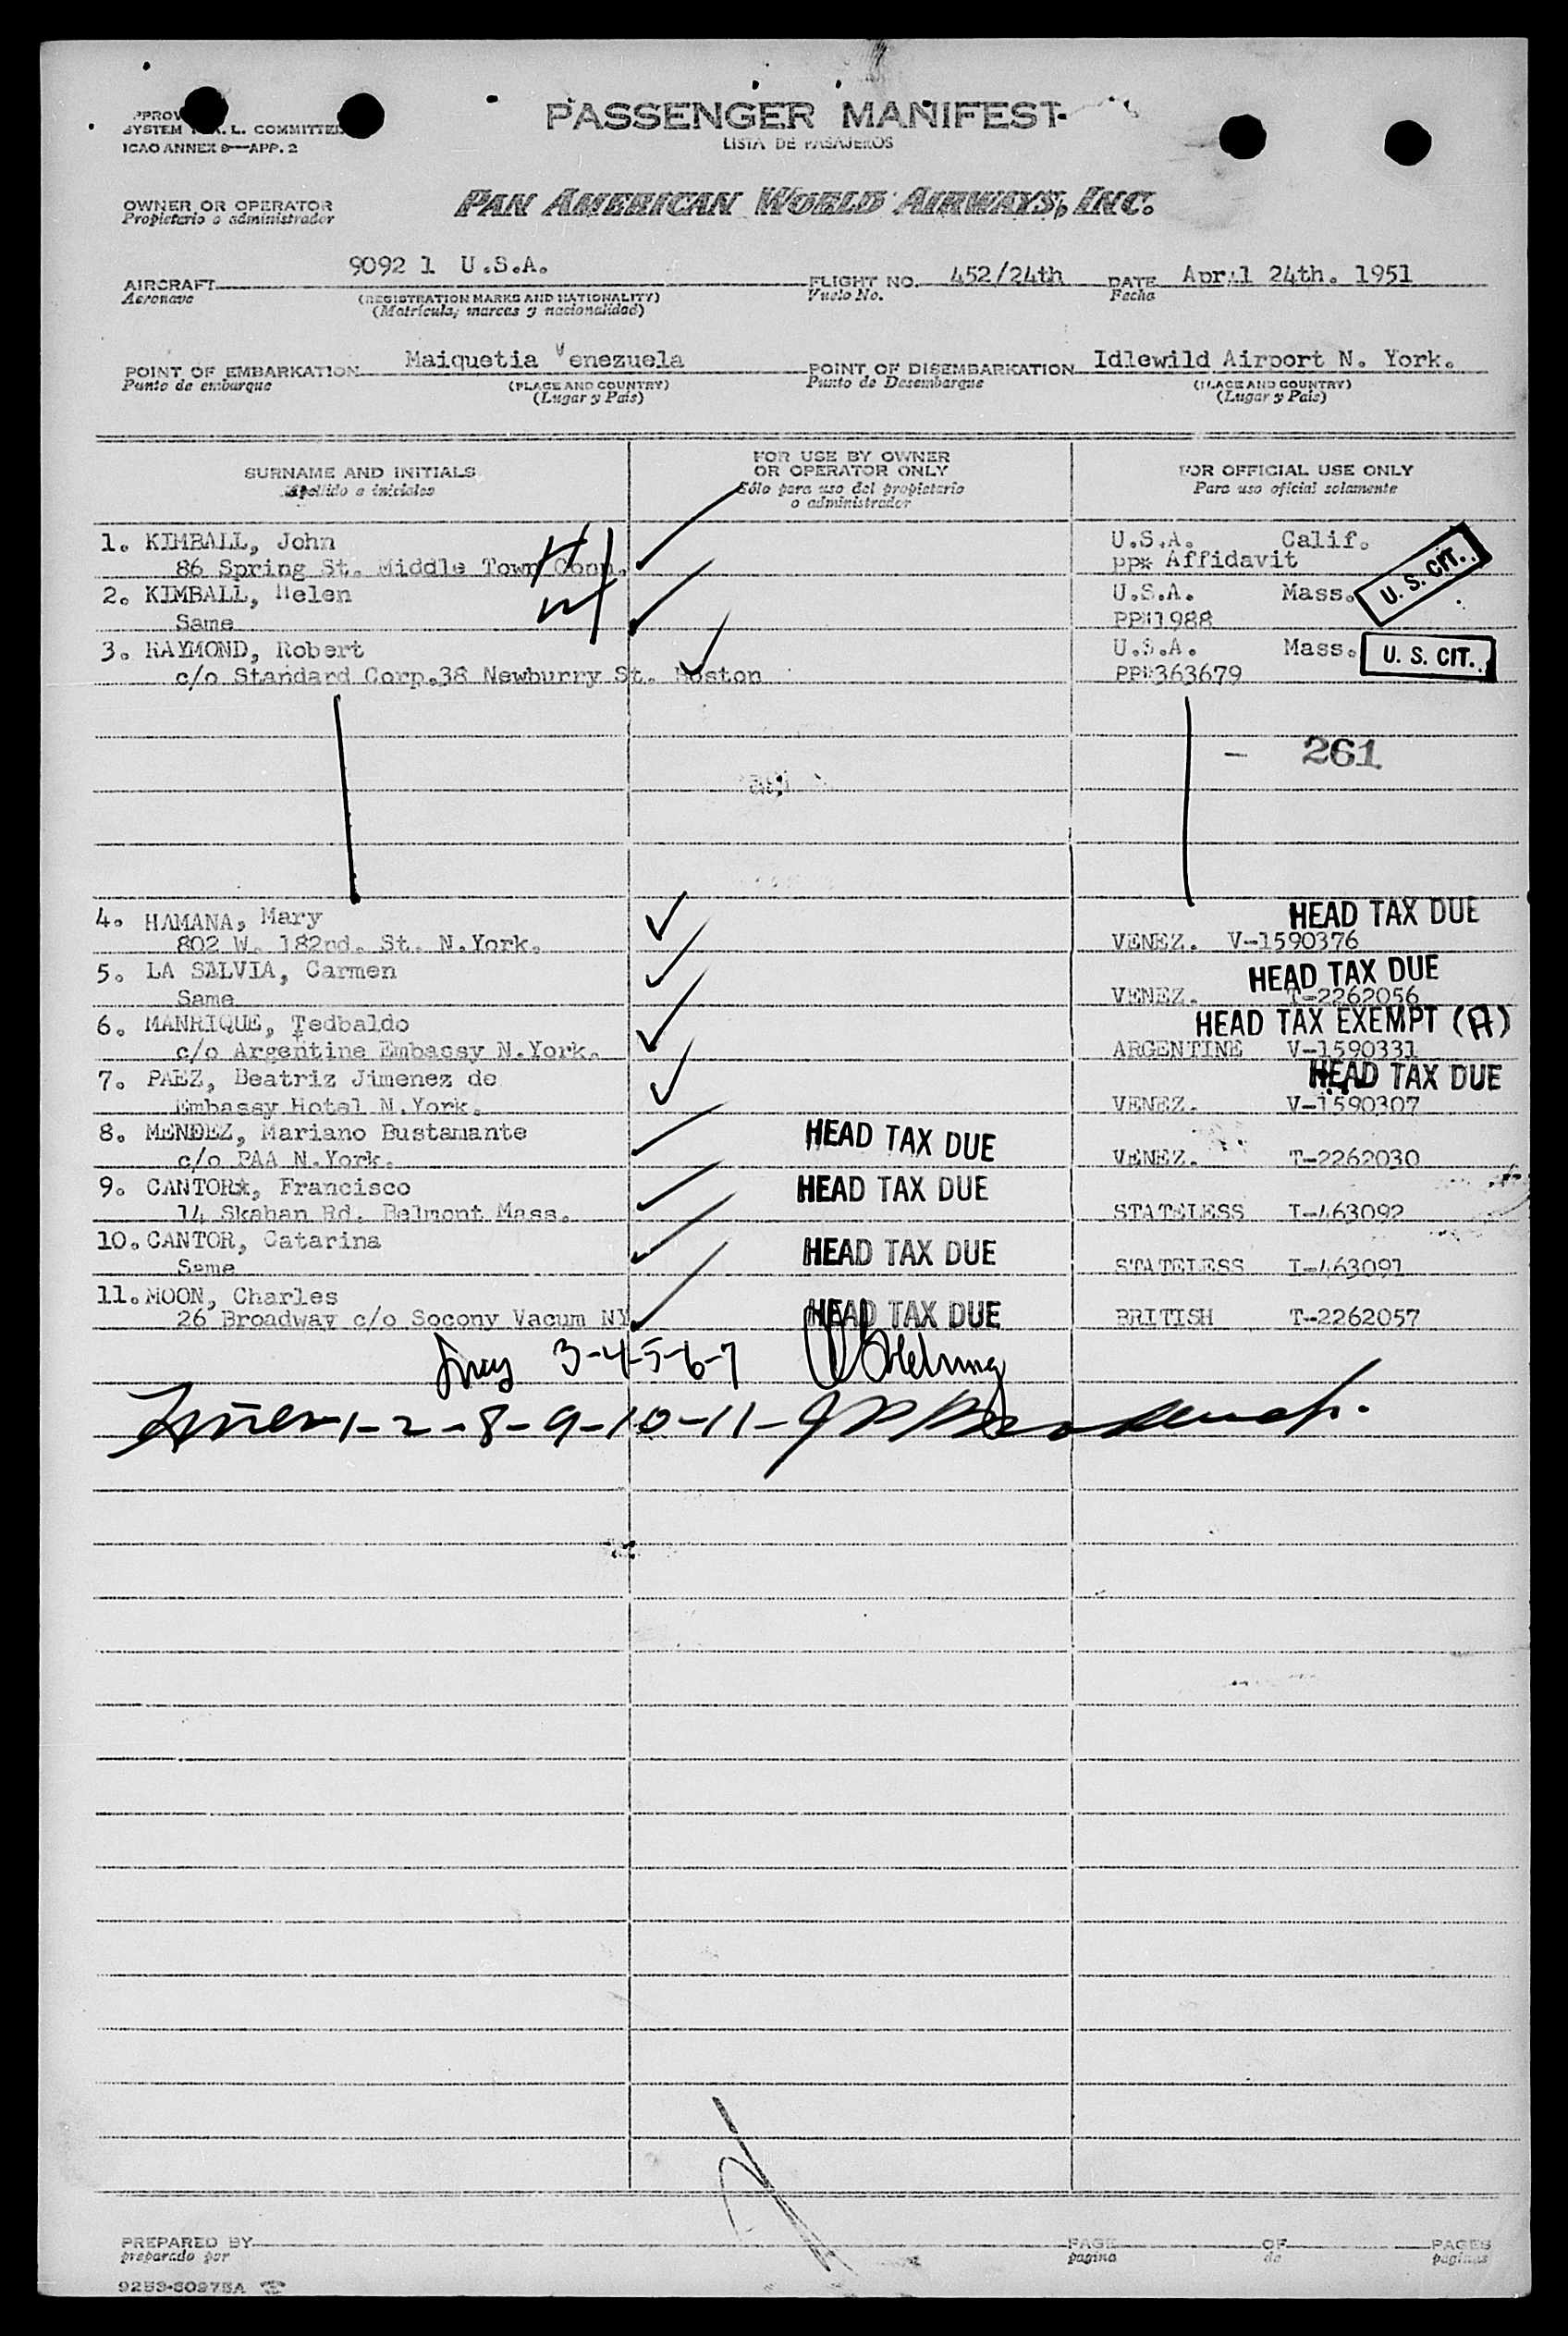 SYSTEM F.A.L. COMMITTEE
ICAO ANNEX 9—APP. 2
PASSENGER MANIFEST
LISTA DE PASAJEROS
OWNER OR OPERATOR
Propietario o administrador
PAN AMERICAN WORLD AIRWAYS, INC.
AIRCRAFT 9092 1 U.S.A. FLIGHT NO. 452/24th DATE April 24th. 1951
Aeronave (REGISTRATION MARKS AND NATIONALITY) Vuelo No. Fecha
(Matrícula, marcas y nacionalidad)
POINT OF EMBARKATION Maiquetia Venezuela POINT OF DISEMBARKATION Idlewild Airport N. York.
Punto de embarque (PLACE AND COUNTRY) Punto de Desembarque (PLACE AND COUNTRY)
(Lugar y País) (Lugar y País)
SURNAME AND INITIALS FOR USE BY OWNER OR OPERATOR ONLY FOR OFFICIAL USE ONLY
Apellido e iniciales Sólo para uso del propietario o administrador Para uso oficial solamente
1. KIMBALL, John U.S.A. Calif.
86 Spring St. Middle Town Conn. pp* Affidavit
2. KIMBALL, Helen U.S.A. Mass. U. S. CIT.
Same PP#1988
3. RAYMOND, Robert U.S.A. Mass. U. S. CIT.
c/o Standard Corp.38 Newburry St. Boston PP#363679
— 261
4. HAMANA, Mary HEAD TAX DUE
802 W. 182nd. St. N.York. VENEZ. V-1590376
5. LA SALVIA, Carmen HEAD TAX DUE
Same VENEZ. T-2262056
6. MANRIQUE, Tedbaldo HEAD TAX EXEMPT (A)
c/o Argentine Embassy N.York. ARGENTINE V-1590331
7. PAEZ, Beatriz Jimenez de HEAD TAX DUE
Embassy Hotel N.York. VENEZ. V-1590307
8. MENDEZ, Mariano Bustamante HEAD TAX DUE
c/o PAA N.York. VENEZ. T-2262030
9. CANTORx, Francisco HEAD TAX DUE
14 Skahan Rd. Belmont Mass. STATELESS I-463092
10. CANTOR, Catarina HEAD TAX DUE
Same STATELESS I-463091
11. MOON, Charles HEAD TAX DUE
26 Broadway c/o Socony Vacum NY BRITISH T-2262057
3-4-5-6-7
1-2-8-9-10-11-
PREPARED BY PAGE OF PAGES
preparado por pagina de paginas